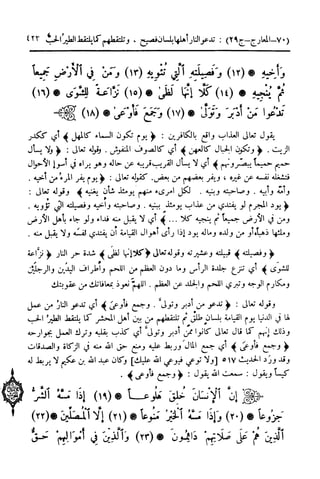 (٧٠-المعارج-ج٢٩) : تدعو النار أهلها بلسان فصيح . وتلتقطهم كما يلتقط الطير الحب ٤٢٣
وَأَخِيهِ * (١٢) وَفَصِيلَتِهِ الَّتِي تُئْوِيهِ * (١٣) وَمَنْ فِي الْأَرْضِ جَمِيعًا
ثُمَّ يُنْجِيهِ * (١٤) كَلَّا إِنَّهَا لَظَىٰ * (١٥) نَزَّاعَةً لِلشَّوَىٰ * (١٦)
تَدْعُوا مَنْ أَدْبَرَ وَتَوَلَّىٰ * (١٧) وَجَمَعَ فَأَوْعَىٰ * (١٨)
يقول تعالى العذاب واقع بالكافرين : ﴿ يوم تكون السماء كالمهل ﴾ أي ككدر
الزيت . ﴿ وتكون الجبال كالعهن ﴾ أي كالصوف المنفوش . وقوله تعالى : ﴿ ولا يسأل
حميم حميماً يبصرونهم ﴾ أي لا يسأل القريب قريبه عن حاله وهو يراه في أسوإ الأحوال
فتشغله نفسه عن غيره ، ويفر بعضهم من بعض. كقوله تعالى : ﴿ يوم يفر المرء من أخيه .
وأمه وأبيه . وصاحبته وبنيه . لكل امرىء منهم يومئذ شأن يغنيه ﴾ وقوله تعالى :
﴿ يود المجرم لو يفتدي من عذاب يومئذ ببنيه . وصاحبته وأخيه وفصيلته التي تؤويه .
ومن في الأرض جميعاً ثم ينجيه كلا ... ﴾ أي لا يقبل منه فداء ولو جاء بأهل الأرض
وملئها ذهباً أو من ولده وماله يود إذا رأى أهوال القيامة أن يفتدي لنفسه ولا يقبل منه .
﴿ وفصيلته ﴾ قبيلته وعشيرته وقوله تعالى ﴿ كلا إنها لظى ﴾ شدة حر النار ﴿ نزاعة
للشوى ﴾ أي تنزع جلدة الرأس وما دون العظم من اللحم وأطراف اليدين والرجلين
ومكارم الوجه وتبري اللحم والجلد عن العظم . اللهم نعوذ بمعافاتك من عقوبتك
وقوله تعالى : ﴿ تدعو من أدبر وتولى . وجمع فأوعى ﴾ أي تدعو النار من عمل
لها في الدنيا يوم القيامة بلسان طلق ثم تلتقطهم من بين أهل المحشر كما يلتقط الطير الحب
وذلك إنهم كما قال تعالى كانوا ممن أدبر وتولى أي كذب بقلبه وترك العمل بجوارحه
﴿ وجمع فأوعى ﴾ أي جمع المال وربط عليه ومنع حق الله منه في الزكاة والصدقات
وقد ورد الحديث ٥١٧ [ولا توعي فيوعي الله عليك] وكان عبد الله بن عكيم لا يربط له
كيساً ويقول : سمعت الله يقول : ﴿ وجمع فأوعى ﴾ .
﴿ إِنَّ الْإِنْسَانَ خُلِقَ هَلُوعًا * (١٩) إِذَا مَسَّهُ الشَّرُّ
جَزُوعًا * (٢٠) وَإِذَا مَسَّهُ الْخَيْرُ مَنُوعًا * (٢١) إِلَّا الْمُصَلِّينَ * (٢٢)
الَّذِينَ هُمْ عَلَىٰ صَلَاتِهِمْ دَائِمُونَ * (٢٣) وَالَّذِينَ فِي أَمْوَالِهِمْ حَقٌّ